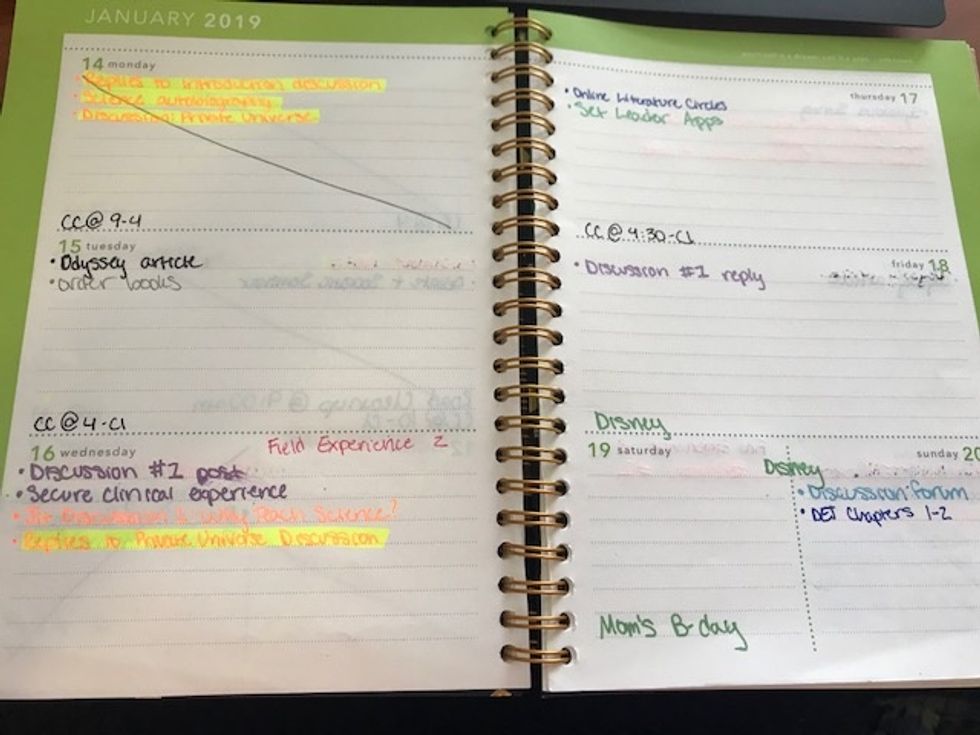 JANUARY 2019
14 monday
• Replies to introduction discussion
• Science autobiography
• Discussion: Private Universe
CC@ 9-4
15 tuesday
• Odyssey article
• order books
CC@ 4-Cl
16 wednesday
Field Experience 2
• Discussion #1 post
• Secure clinical experience
• Discussion 1: Why Teach Science?
• Replies to Private Universe Discussion
thursday 17
• Online Literature Circles
• Set Leader Apps
CC@ 4:30-Cl
friday 18
• Discussion #1 reply
Disney
19 saturday
Mom's B-day
sunday 20
Disney
• Discussion forum
• DEJ Chapters 1-2